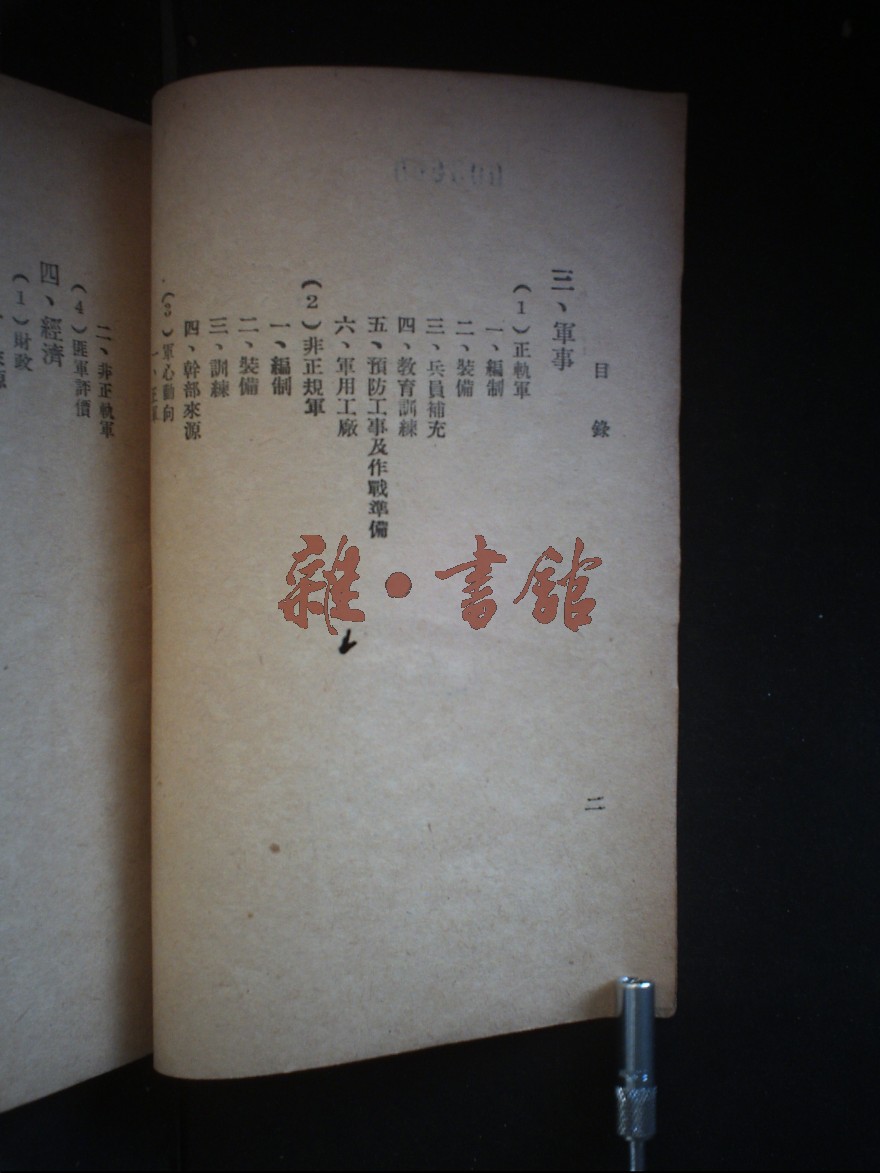 目錄
三、軍事
(1)正執軍
一、編制
二、裝備
三、兵員補充
四、教育訓練
五、預防工事及作戰準備
六、軍用工廠
(2)非正規軍
一、編制
二、裝備
三、訓練
四、幹部來源
(3)軍心動向
二
二、非正執軍
(4)匪軍評價
四、經濟
(1)財政
雜·書館